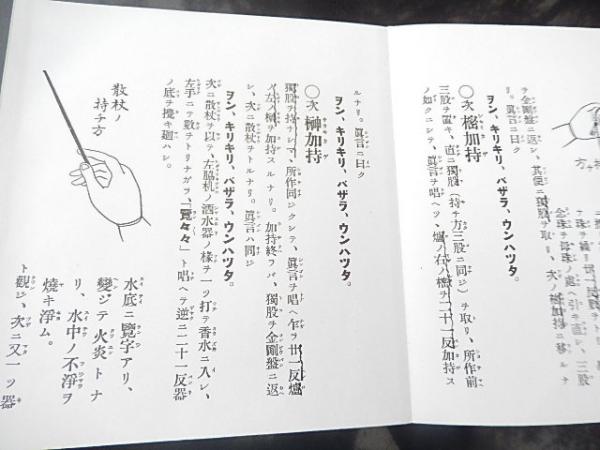 ヲ金剛盤ニ返シ、其便ニ獨股ヲ取リ、次ノ樒加持ニ移ルナ
リ。眞言ニ曰ク
ヲン、キリキリ、バザラ、ウンハツタ。
〇次 樒加持
三股ヲ置キ、直ニ獨股（持チ方三股ニ同ジ）ヲ取リ、所作前
ノ如クニシテ、眞言ヲ唱ヘツ、爐ノ右ハ樒ヲ二十一反加持ス
ルナリ。眞言ニ曰ク
ヲン、キリキリ、バザラ、ウンハツタ。
〇次 榊加持
獨股ヲ持チシマヽ、所作同ジクシテ、眞言ヲ唱ヘ乍ラ廿一反爐
ノ左ハ榊ヲ加持スルナリ。加持終ラバ、獨股ヲ金剛盤ニ返
シ、次ニ散杖ヲトルナリ。眞言ハ同ジ
ヲン、キリキリ、バザラ、ウンハツタ。
次ニ散杖ヲ以テ、左脇机ノ洒水器ノ樣ヲ一ツ打テ香水ニ入レ、
左手ニテ數ヲトリナガラ、「覽々々」ト唱ヘテ逆ニ二十一反器
ノ底ヲ攪キ廻ハシ。
散杖ノ
持チ方
水底ニ覽字アリ、
變ジテ火炎トナ
リ、水中ノ不淨ヲ
燒キ淨ム。
ト觀ジ、次ニ又一ツ器